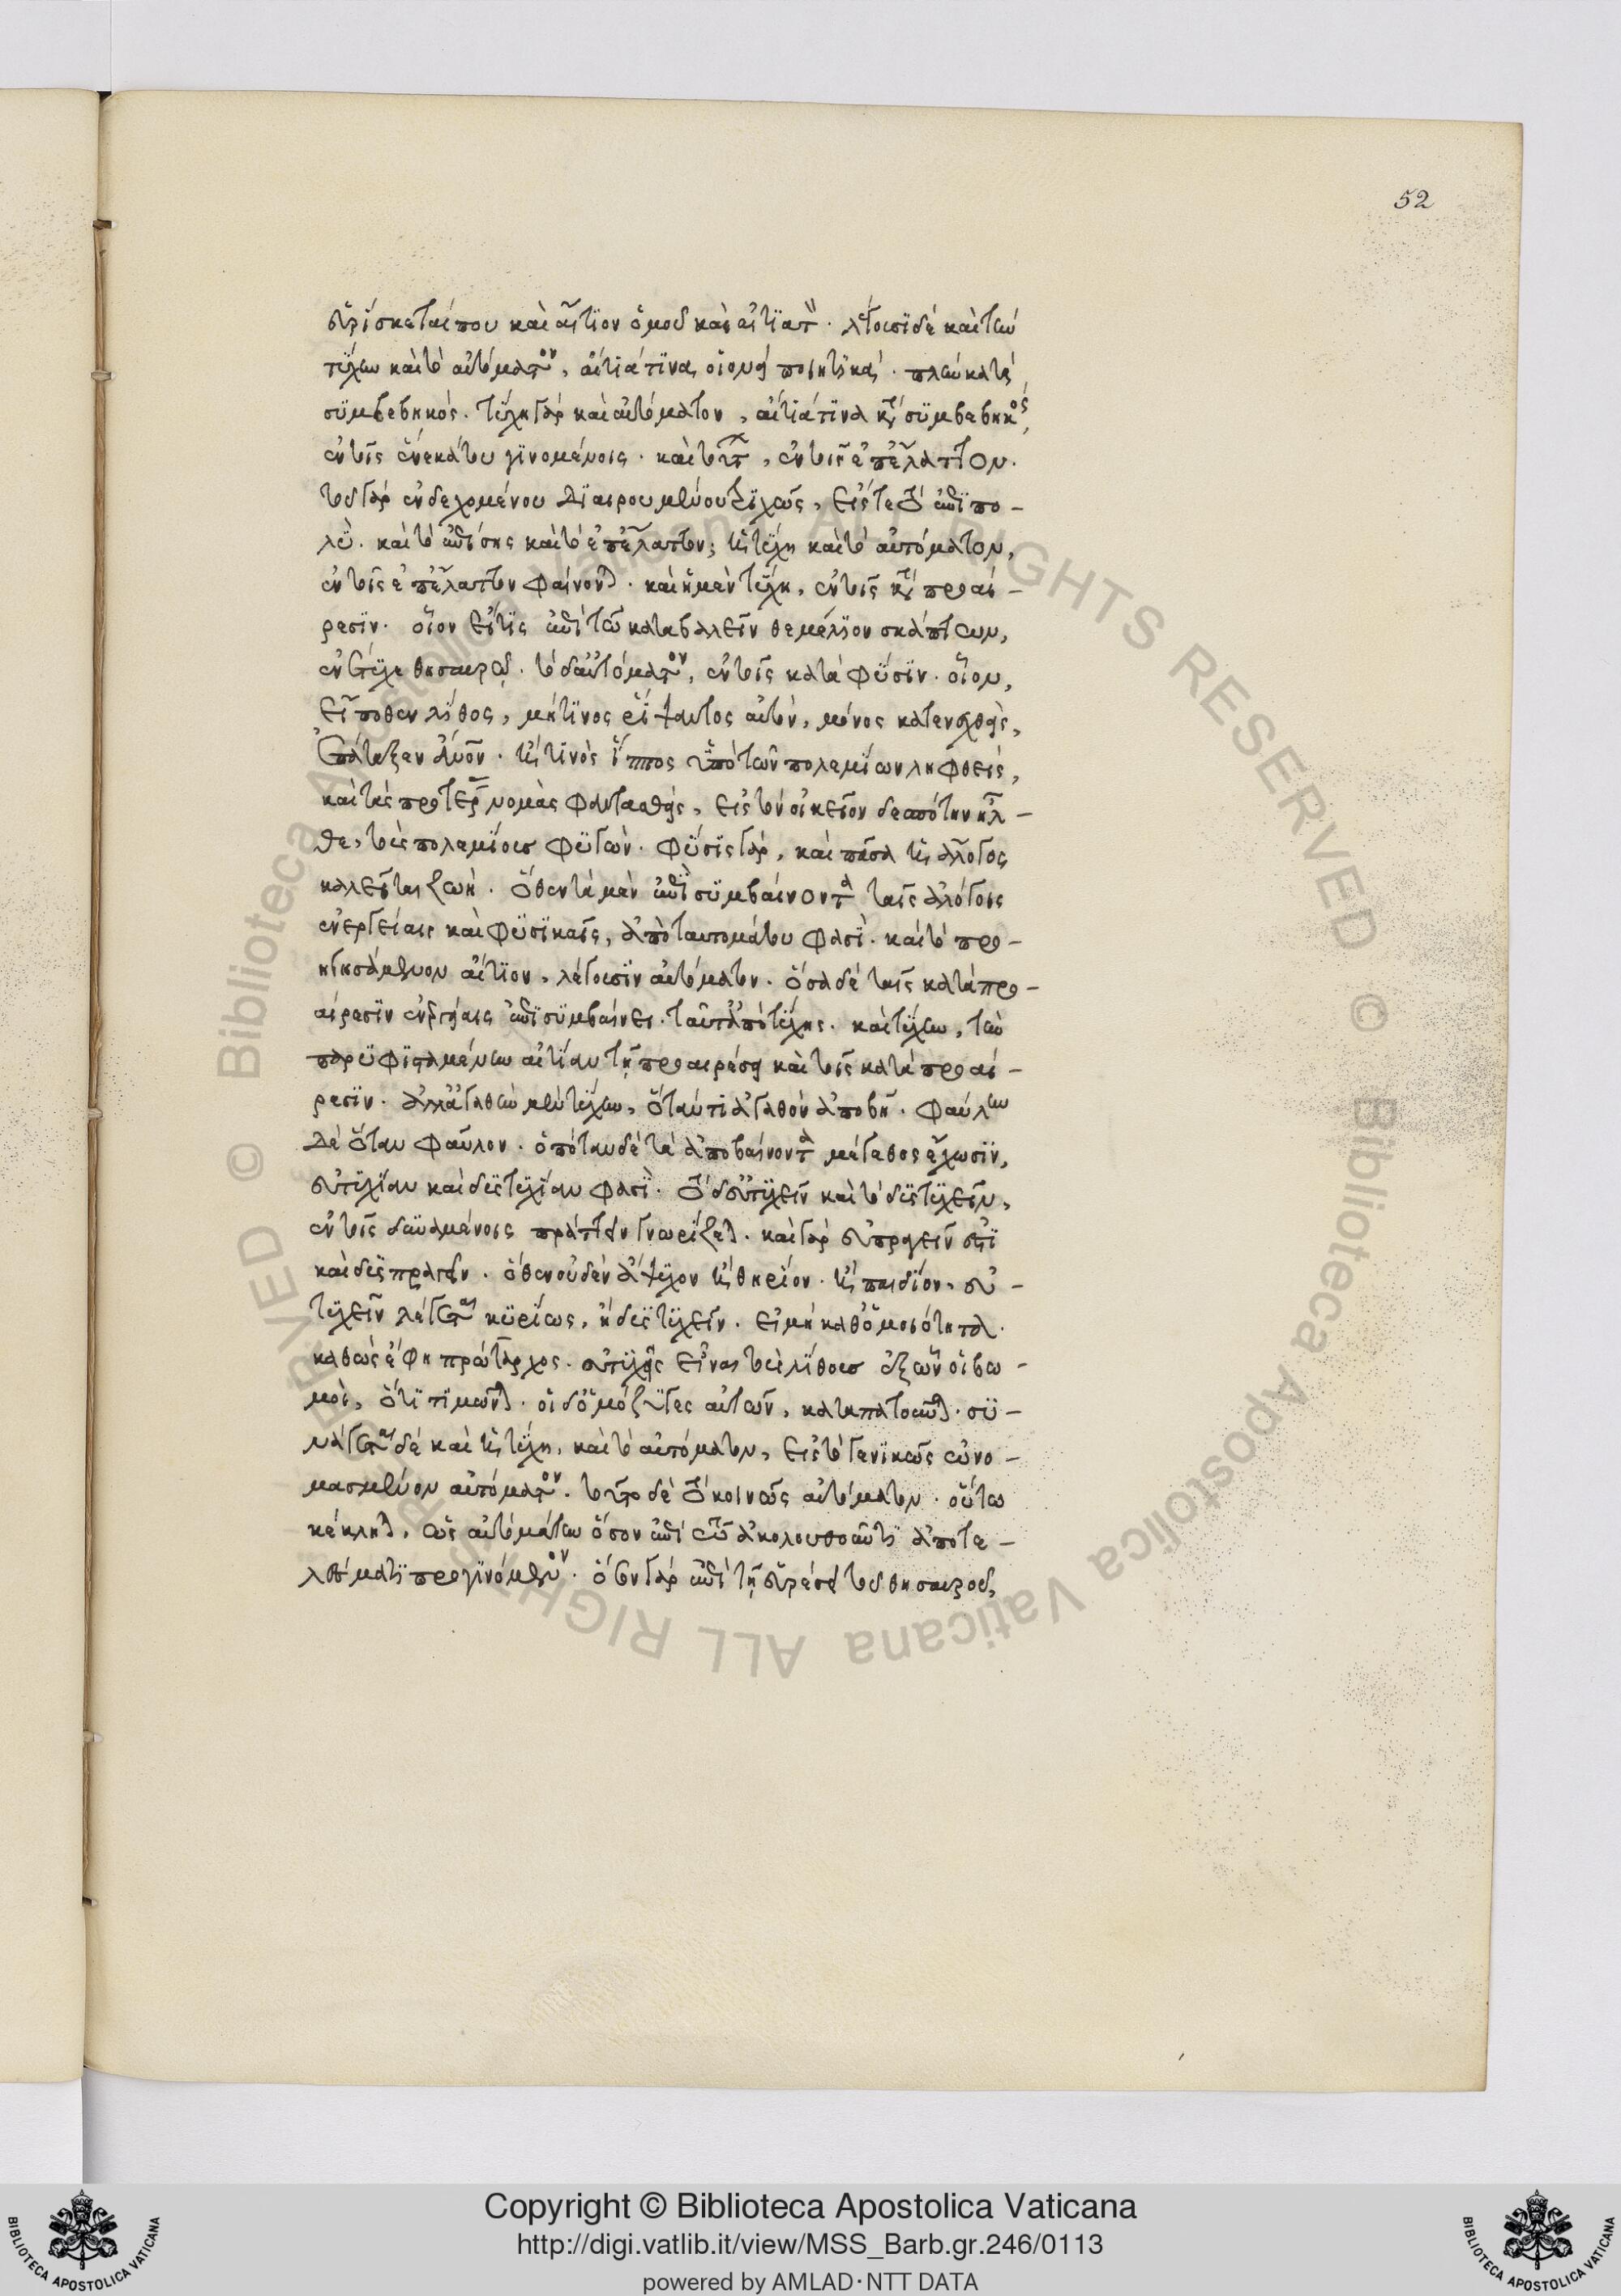 52
εὑρίσκεταί που καὶ αἴτιον ὁμοῦ καὶ αἰτιατόν. λέγουσι δὲ καὶ τὴν
τύχην καὶ τὸ αὐτόματον, αἴτιά τινα, οἱονεὶ ποιητικά. πλὴν κατὰ
συμβεβηκός. τύχη γὰρ καὶ αὐτόματον, αἴτιά τινα κατὰ συμβεβηκός,
ἐν τοῖς ἕνεκά του γινομένοις. καὶ τούτων, ἐν τοῖς ἐπ' ἔλαττον.
τοῦ γὰρ ἐνδεχομένου διαιρουμένου τριχῶς, εἴς τε τὸ ἐπὶ πο-
λύ. καὶ τὸ ἐπίσης καὶ τὸ ἐπ' ἔλαττον, ἡ τύχη καὶ τὸ αὐτόματον,
ἐν τοῖς ἐπ' ἔλαττον φαίνονται. καὶ ἡ μὲν τύχη, ἐν τοῖς κατὰ προαί-
ρεσιν. οἷον εἴ τις ἐπὶ τῷ καταβαλεῖν θεμέλιον σκάπτων,
ἐντύχῃ θησαυρῷ. τὸ δ' αὐτόματον, ἐν τοῖς κατὰ φύσιν. οἷον,
εἴ ποθεν λίθος, μή τινος ῥίψαντος αὐτὸν, μόνος κατενεχθεὶς,
ἐπάταξεν αὐτόν. ἤ τινὸς ἵππος ὑπὸ τῶν πολεμίων ληφθεὶς,
καὶ τὰς προτέρας νομὰς φαντασθεὶς, εἰς τὸν οἰκεῖον δεσπότην ἦλ-
θε, τοὺς πολεμίους φυγών. φύσις γὰρ, καὶ πᾶσα ἡ ἄλογος
καλεῖται ζωή. ὅθεν τὰ μὲν ἐπισυμβαίνοντα ταῖς ἀλόγοις
ἐνεργείαις καὶ φυσικαῖς, ἀπὸ ταυτομάτου φασί. καὶ τὸ προ-
ηγησάμενον αἴτιον, λέγουσιν αὐτόματον. ὅσα δὲ ταῖς κατὰ προ-
αίρεσιν ἐνεργείαις ἐπισυμβαίνει. ταῦτα ἀπὸ τύχης. καὶ τύχην, τὴν
παρυφισταμένην αἰτίαν τῇ προαιρέσει καὶ τοῖς κατὰ προαί-
ρεσιν. ἀλλ' ἀγαθὴν μὲν τύχην, ὅταν τι ἀγαθὸν ἀποβῇ. φαύλην
δὲ ὅταν φαῦλον. ὁπόταν δὲ τὰ ἀποβαίνοντα μέγεθος ἔχωσιν,
εὐτυχίαν καὶ δυστυχίαν φασί. τὸ δ' εὐτυχεῖν καὶ τὸ δυστυχεῖν,
ἐν τοῖς δυναμένοις πράττειν γνωρίζεται. καὶ γὰρ εὐπραγεῖν ἐστι
καὶ δυσπραγεῖν. ὅθεν οὐδὲν ἄψυχον ἢ θηρίον. ἢ παιδίον, εὐ-
τυχεῖν λέγεται κυρίως, ἢ δυστυχεῖν. εἰ μὴ καθ' ὁμοιότητα.
καθὼς ἔφη πρώταρχος. εὐτυχεῖς εἶναι τοὺς λίθους ἐξ ὧν οἱ βω-
μοὶ, ὅτι τιμῶνται. οἱ δ' ὁμόζυγες αὐτῶν, καταπατοῦνται. συ-
νάγεται δὲ καὶ ἡ τύχη, καὶ τὸ αὐτόματον, εἰς τὸ γενικῶς ὠνο-
μασμένον αὐτόματον. τοῦτο δὲ τὸ κοινῶς αὐτόματον. οὕτω
κέκληται, ὡς αὐτὸ μάτην ὅσον ἐπὶ τῷ ἀκολουθοῦντι ἀποτε-
λέσματι προγινόμενον. ὅσον γὰρ ἐπὶ τῇ εὑρέσει τοῦ θησαυροῦ,
Copyright © Biblioteca Apostolica Vaticana
http://digi.vatlib.it/view/MSS_Barb.gr.246/0113
powered by AMLAD·NTT DATA